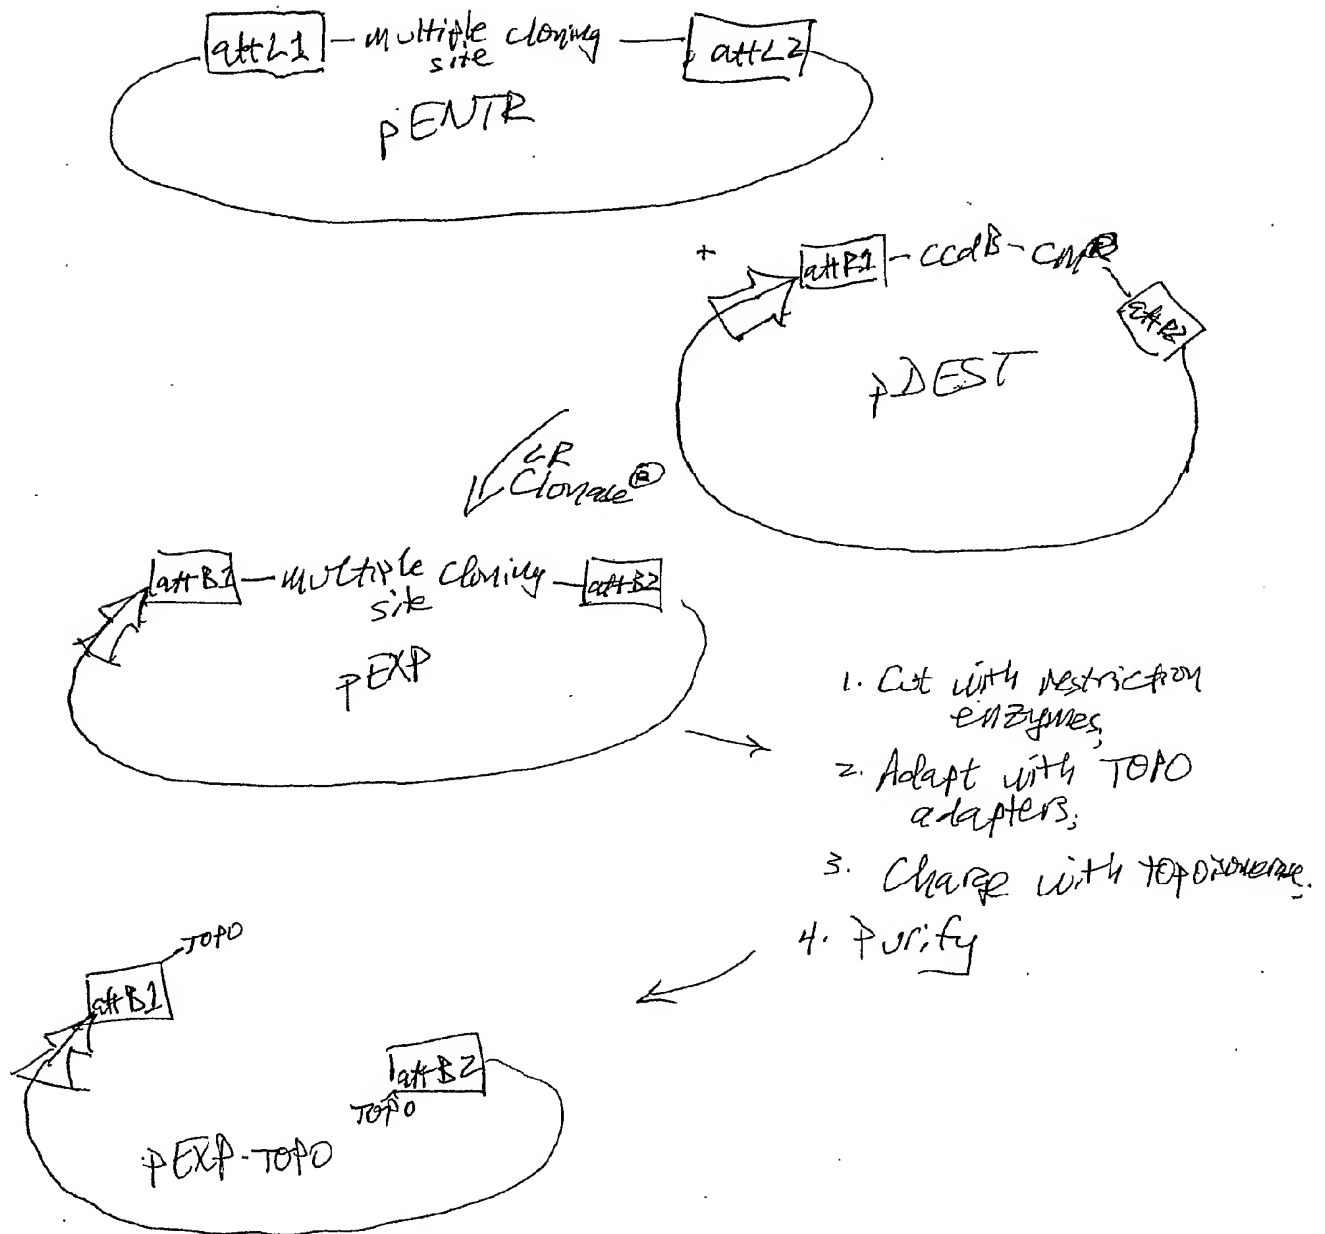 attL1 – multiple cloning – attL2
site
pENTR
+ attR1 – ccdB – CmR
attR2
pDEST
LR
Clonase®
attB1 – multiple cloning – attB2
site
pEXP
1. Cut with restriction
enzymes;
2. Adapt with TOPO
adapters;
3. Charge with topoisomerase.
4. Purify
TOPO
attB1
attB2
TOPO
pEXP-TOPO